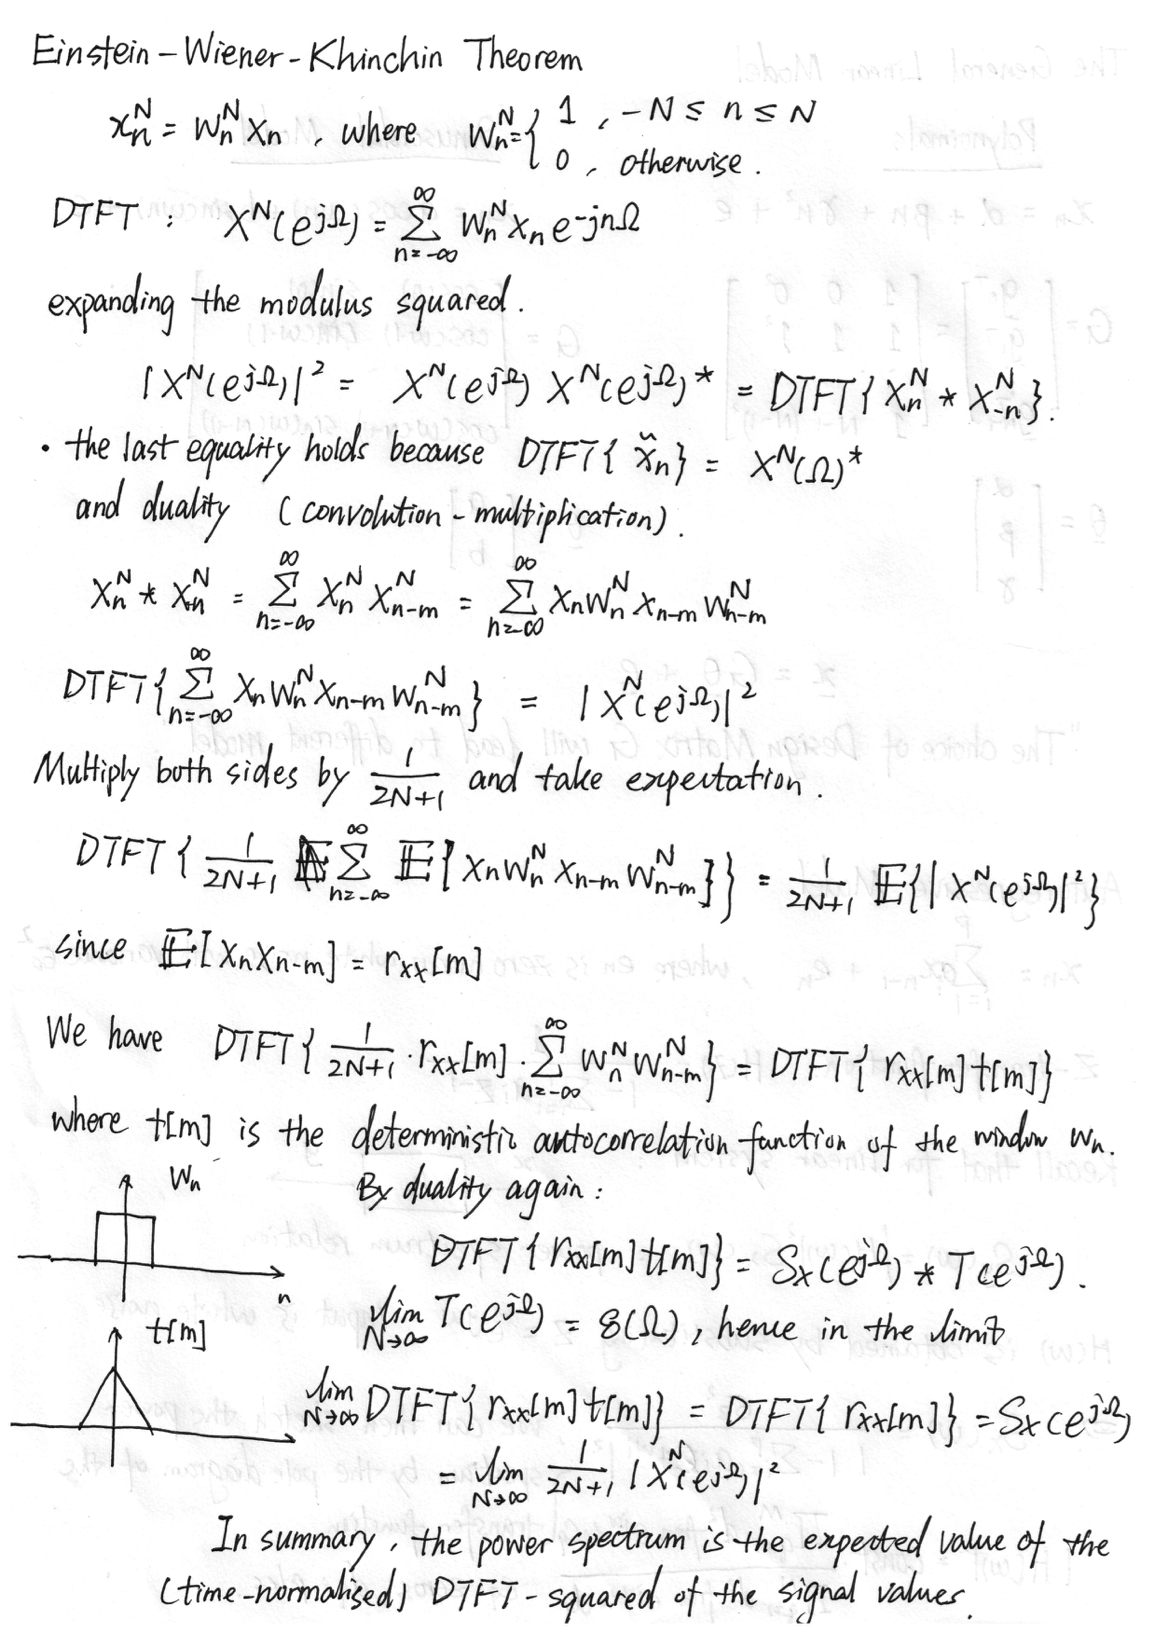 Einstein-Wiener-Khinchin Theorem
xₙᴺ = wₙᴺ xₙ , where wₙᴺ = { 1 , -N ≤ n ≤ N
0 , otherwise .
DTFT : Xᴺ(e^{jΩ}) = Σ_{n=-∞}^{∞} wₙᴺ xₙ e^{-jnΩ}
expanding the modulus squared .
|Xᴺ(e^{jΩ})|² = Xᴺ(e^{jΩ}) Xᴺ(e^{jΩ})* = DTFT{ xₙᴺ * x₋ₙᴺ } .
• the last equality holds because DTFT{ x̌ₙ } = Xᴺ(Ω)*
and duality ( convolution - multiplication) .
xₙᴺ * xₙᴺ = Σ_{n=-∞}^{∞} xₙᴺ xₙ₋ₘᴺ = Σ_{n=-∞}^{∞} xₙ wₙᴺ xₙ₋ₘ wₙ₋ₘᴺ
DTFT{ Σ_{n=-∞}^{∞} xₙ wₙᴺ xₙ₋ₘ wₙ₋ₘᴺ } = |Xᴺ(e^{jΩ})|²
Multiply both sides by 1/(2N+1) and take expectation .
DTFT { 1/(2N+1) Σ_{n=-∞}^{∞} 𝔼[ xₙ wₙᴺ xₙ₋ₘ wₙ₋ₘᴺ ] } = 1/(2N+1) 𝔼{ |Xᴺ(e^{jΩ})|² }
since 𝔼[ xₙ xₙ₋ₘ ] = r_{xx}[m]
We have DTFT{ 1/(2N+1) · r_{xx}[m] · Σ_{n=-∞}^{∞} wₙᴺ wₙ₋ₘᴺ } = DTFT{ r_{xx}[m] t[m] }
where t[m] is the deterministic autocorrelation function of the window wₙ.
wₙ
n
By duality again :
DTFT{ r_{xx}[m] t[m] } = Sₓ(e^{jΩ}) * T(e^{jΩ}) .
lim_{N→∞} T(e^{jΩ}) = δ(Ω) , hence in the limit
t[m]
lim_{N→∞} DTFT{ r_{xx}[m] t[m] } = DTFT{ r_{xx}[m] } = Sₓ(e^{jΩ})
= lim_{N→∞} 1/(2N+1) |Xᴺ(e^{jΩ})|²
In summary , the power spectrum is the expected value of the
(time-normalised) DTFT - squared of the signal values.